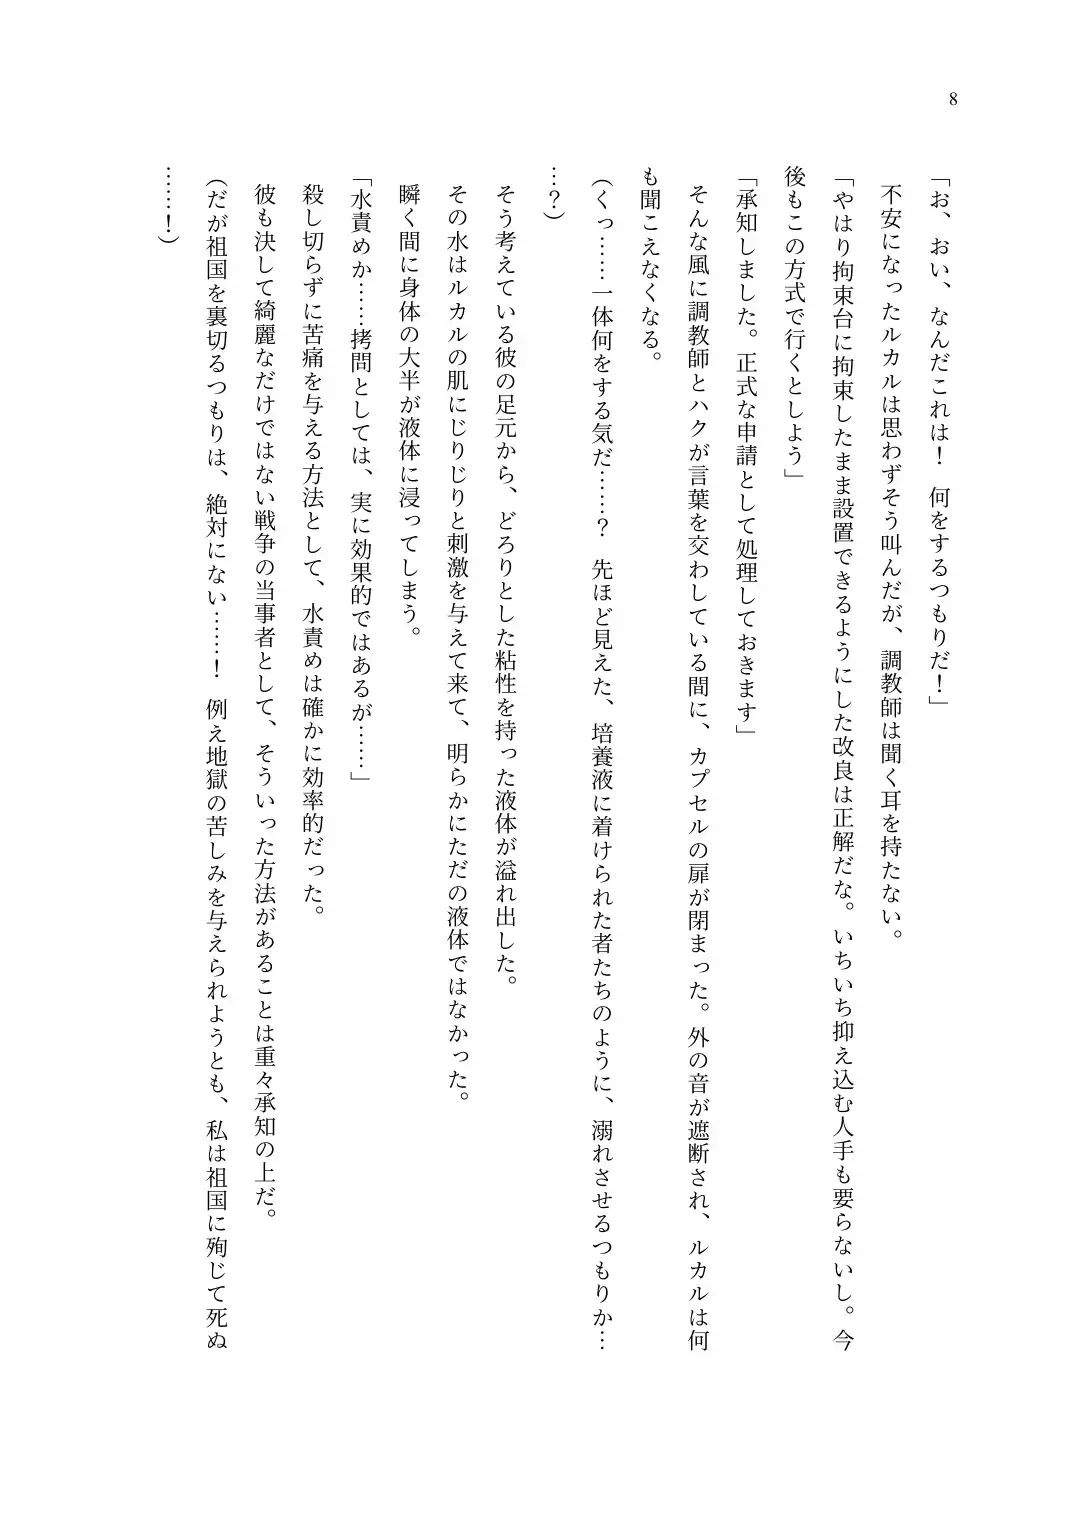 8
「お、おい、なんだこれは！　何をするつもりだ！」
　不安になったルカルは思わずそう叫んだが、調教師は聞く耳を持たない。
「やはり拘束台に拘束したまま設置できるようにした改良は正解だな。いちいち抑え込む人手も要らないし。今
後もこの方式で行くとしよう」
「承知しました。正式な申請として処理しておきます」
　そんな風に調教師とハクが言葉を交わしている間に、カプセルの扉が閉まった。外の音が遮断され、ルカルは何
も聞こえなくなる。
（くっ……一体何をする気だ……？　先ほど見えた、培養液に着けられた者たちのように、溺れさせるつもりか…
…？）
　そう考えている彼の足元から、どろりとした粘性を持った液体が溢れ出した。
　その水はルカルの肌にじりじりと刺激を与えて来て、明らかにただの液体ではなかった。
　瞬く間に身体の大半が液体に浸ってしまう。
「水責めか……拷問としては、実に効果的ではあるが……」
　殺し切らずに苦痛を与える方法として、水責めは確かに効率的だった。
　彼も決して綺麗なだけではない戦争の当事者として、そういった方法があることは重々承知の上だ。
（だが祖国を裏切るつもりは、絶対にない……！　例え地獄の苦しみを与えられようとも、私は祖国に殉じて死ぬ
……！）